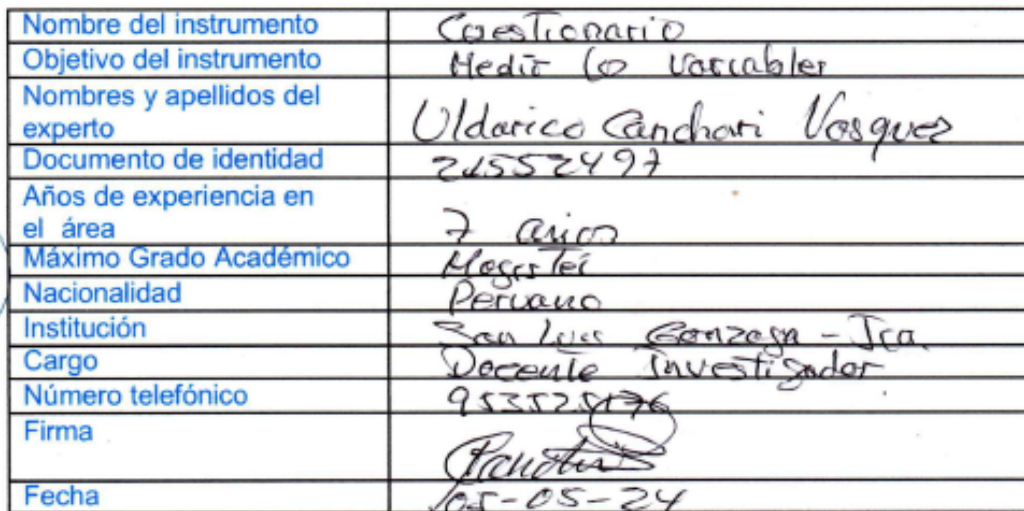 Nombre del instrumento Cuestionario
Objetivo del instrumento Medir lo variables
Nombres y apellidos del
experto Uldarico Canchari Vasquez
Documento de identidad 21552497
Años de experiencia en
el área 7 años
Máximo Grado Académico Magister
Nacionalidad Peruano
Institución San Luis Gonzaga - Ica
Cargo Docente Investigador
Número telefónico 953525176
Firma
Fecha 05-05-24